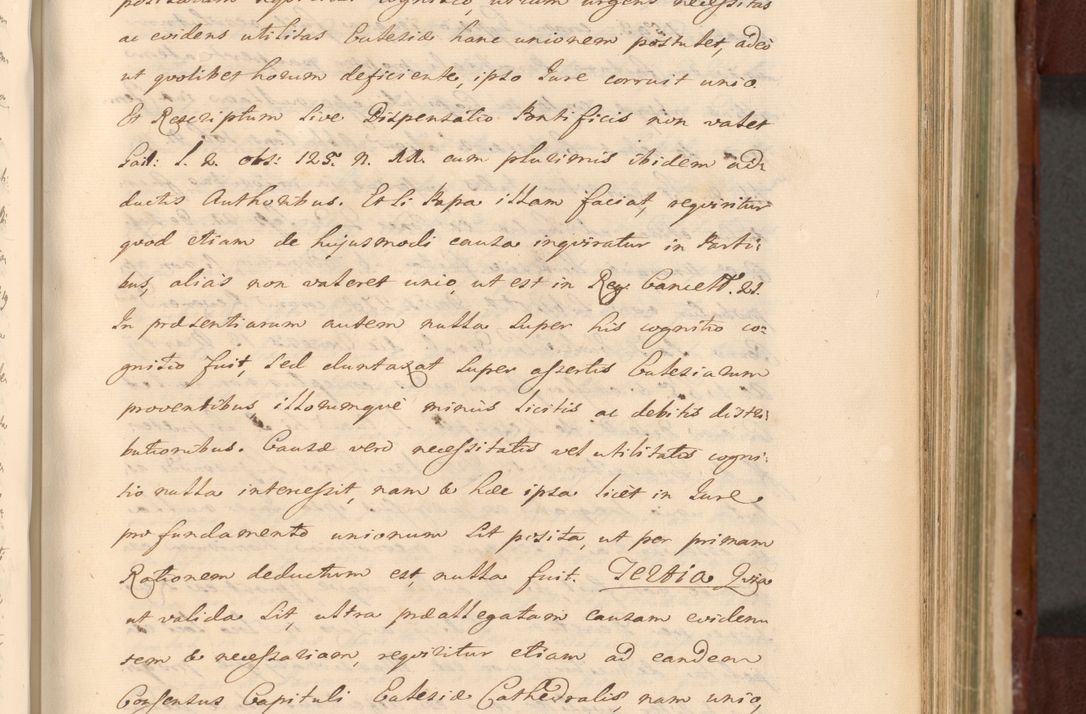 ac evidens utilitas Ecclesiæ hanc unionem postulet, adeo
ut quolibet horum deficiente, ipso Jure corruit unio.
Et Rescriptum sive Dispensatio Pontificis non valet
l. 2. obs: 125. n. cum plurimis ibidem ad:
ductis Authoribus. Et si Papa illam faciat, requiritur
quod etiam de hujusmodi causa inquiratur in Parti:
bus, alias non valeret unio, ut est in Reg. Cancell. 21.
In præsentiarum autem nulla super his cognitio co:
gnitio fuit, sed duntaxat super assertis Ecclesiarum
proventibus illorumque minus licitis ac debitis distri:
butionibus. Causæ vero necessitatis vel utilitatis cogni:
tio nulla intercessit, nam & hæc ipsa licet in Jure
pro fundamento unionum sit posita, ut per primam
Rationem deductum est, nulla fuit. Tertia Quia
ut valida sit, ultra præallegatam causam eviden
tem & necessariam, requiritur etiam ad eandem
Consensus Capituli Ecclesiæ Cathedralis, nam unio,